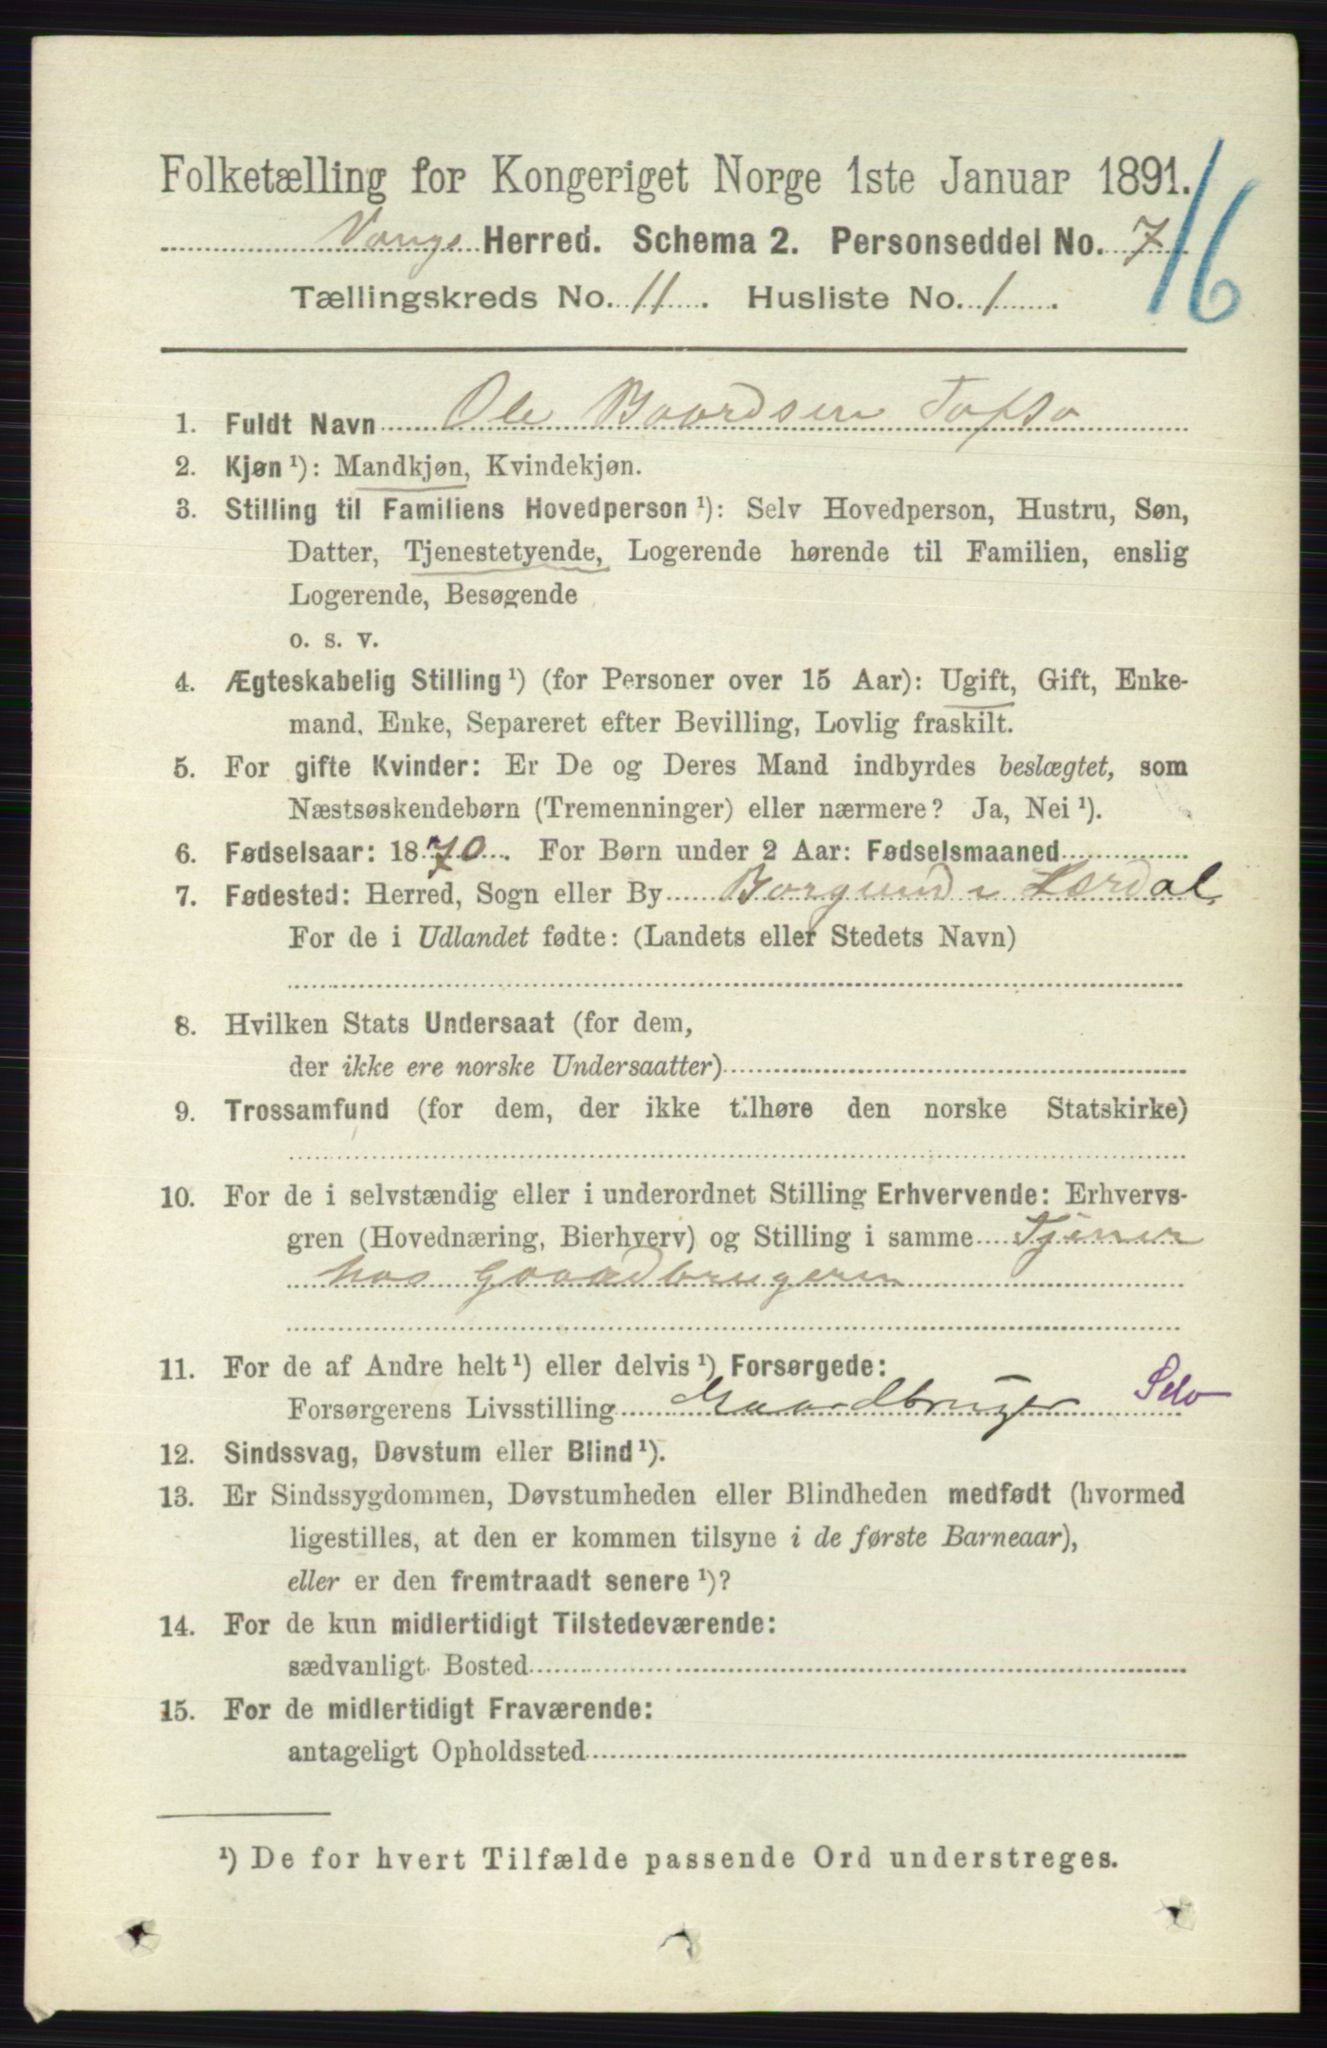 Folketælling for Kongeriget Norge 1ste Januar 1891.
16
Vangs Herred. Schema 2. Personseddel No. 7
Tællingskreds No. 11. Husliste No. 1.
1. Fuldt Navn Ole Baardsen
2. Kjøn ¹): Mandkjøn, Kvindekjøn.
3. Stilling til Familiens Hovedperson ¹): Selv Hovedperson, Hustru, Søn,
Datter, Tjenestetyende, Logerende hørende til Familien, enslig
Logerende, Besøgende
o. s. v.
4. Ægteskabelig Stilling ¹) (for Personer over 15 Aar): Ugift, Gift, Enke-
mand, Enke, Separeret efter Bevilling, Lovlig fraskilt.
5. For gifte Kvinder: Er De og Deres Mand indbyrdes beslægtet, som
Næstsøskendebørn (Tremenninger) eller nærmere? Ja, Nei ¹).
6. Fødselsaar: 1870. For Børn under 2 Aar: Fødselsmaaned
7. Fødested: Herred, Sogn eller By Borgund i Lærdal
For de i Udlandet fødte: (Landets eller Stedets Navn)
8. Hvilken Stats Undersaat (for dem,
der ikke ere norske Undersaatter)
9. Trossamfund (for dem, der ikke tilhøre den norske Statskirke)
10. For de i selvstændig eller i underordnet Stilling Erhvervende: Erhvervs-
gren (Hovednæring, Bierhverv) og Stilling i samme Tjener
hos Gaardbrugeren
11. For de af Andre helt ¹) eller delvis ¹) Forsørgede:
Forsørgerens Livsstilling Gaardbruger Selv
12. Sindssvag, Døvstum eller Blind ¹).
13. Er Sindssygdommen, Døvstumheden eller Blindheden medfødt (hvormed
ligestilles, at den er kommen tilsyne i de første Barneaar),
eller er den fremtraadt senere ¹)?
14. For de kun midlertidigt Tilstedeværende:
sædvanligt Bosted
15. For de midlertidigt Fraværende:
antageligt Opholdssted
¹) De for hvert Tilfælde passende Ord understreges.